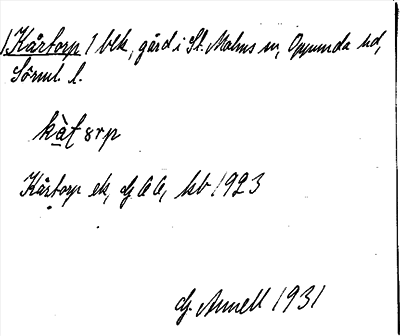 1 Kårtorp 1 blk, gård i St. Malms sn, Oppunda hd,
Sörml. l.
kàt̠ orp
Kårtorp ek, dj 66, kb 1923
dj. Annell 1931